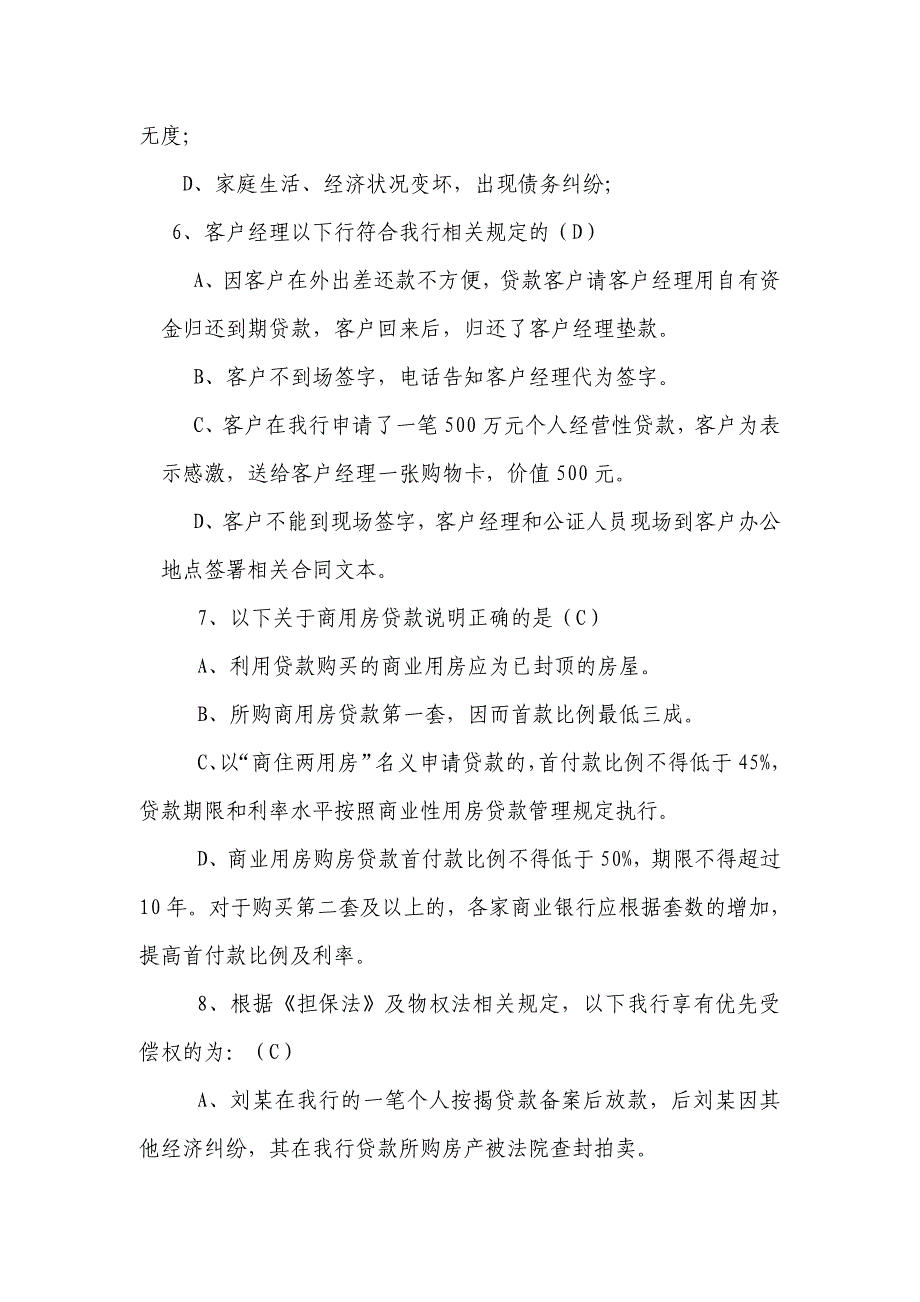 无度；
D、家庭生活、经济状况变坏，出现债务纠纷；
6、客户经理以下行符合我行相关规定的（D）
A、因客户在外出差还款不方便，贷款客户请客户经理用自有资
金归还到期贷款，客户回来后，归还了客户经理垫款。
B、客户不到场签字，电话告知客户经理代为签字。
C、客户在我行申请了一笔 500 万元个人经营性贷款，客户为表
示感激，送给客户经理一张购物卡，价值 500 元。
D、客户不能到现场签字，客户经理和公证人员现场到客户办公
地点签署相关合同文本。
7、以下关于商用房贷款说明正确的是（C）
A、利用贷款购买的商业用房应为已封顶的房屋。
B、所购商用房贷款第一套，因而首款比例最低三成。
C、以“商住两用房”名义申请贷款的，首付款比例不得低于 45%，
贷款期限和利率水平按照商业性用房贷款管理规定执行。
D、商业用房购房贷款首付款比例不得低于 50%，期限不得超过
10 年。对于购买第二套及以上的，各家商业银行应根据套数的增加，
提高首付款比例及利率。
8、根据《担保法》及物权法相关规定，以下我行享有优先受
偿权的为：（C）
A、刘某在我行的一笔个人按揭贷款备案后放款，后刘某因其
他经济纠纷，其在我行贷款所购房产被法院查封拍卖。